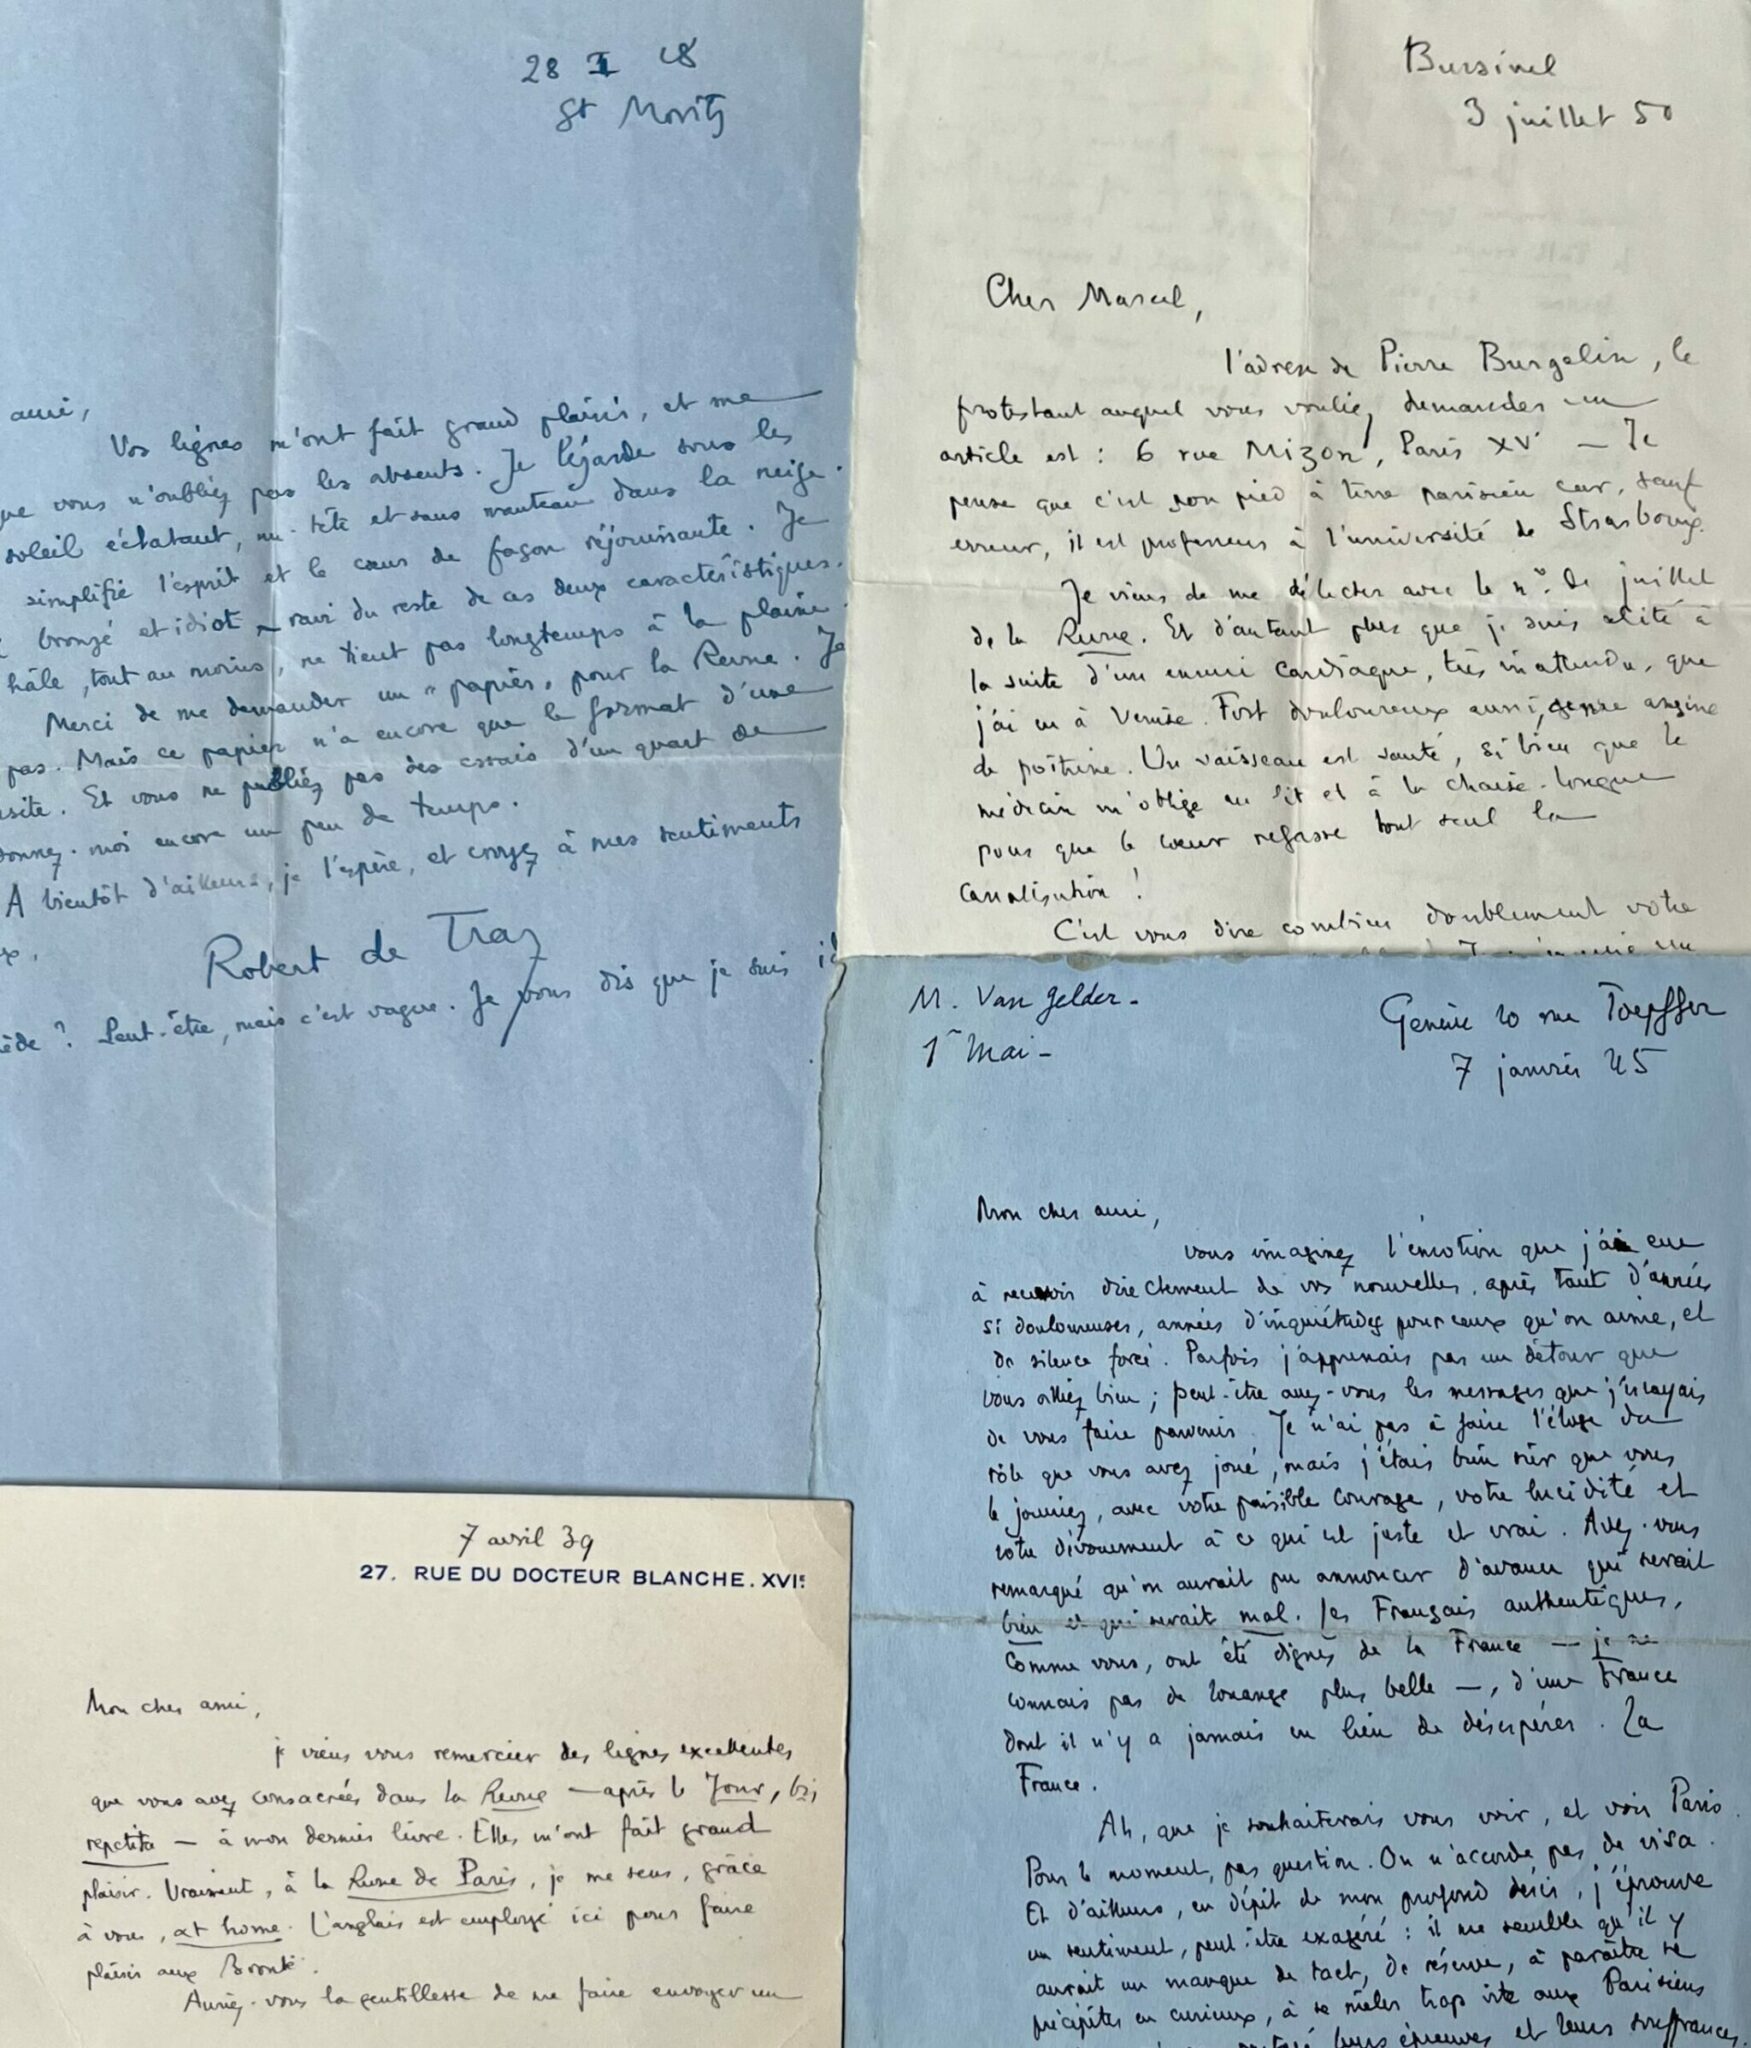 28 I 48
St Moritz
ami,
Vos lignes m'ont fait grand plaisir, et me
que vous n'oubliez pas les absents. Je lézarde sous les
soleil éclatant, nu-tête et sans manteau dans la neige.
simplifié l'esprit et le cœur de façon réjouissante. Je
bronzé et idiot – ravi du reste de ces deux caractéristiques.
hâle, tout au moins, ne tient pas longtemps à la plaine.
Merci de me demander un "papier" pour la Revue. Je
pas. Mais ce papier n'a encore que le format d'une
visite. Et vous ne publiez pas des essais d'un quart de
donnez-moi encore un peu de temps.
A bientôt d'ailleurs, je l'espère, et croyez à mes sentiments
Robert de Traz
? Peut-être, mais c'est vague. Je vous dis que je suis ici
Bursinel
3 juillet 50
Cher Marcel,
l'adresse de Pierre Burgelin, le
protestant auquel vous vouliez demander un
article est : 6 rue Mizon, Paris XV – Je
pense que c'est son pied à terre parisien car, sauf
erreur, il est professeur à l'université de Strasbourg.
Je viens de me délecter avec le n° de juillet
de la Revue. Et d'autant plus que je suis alité à
la suite d'un ennui cardiaque, très inattendu, que
j'ai eu à Venise. Fort douloureux aussi, genre angine
de poitrine. Un vaisseau est sauté, si bien que le
médecin m'oblige au lit et à la chaise-longue
pour que le cœur refasse tout seul la
canalisation !
C'est vous dire combien doublement votre
M. Van Gelder -
1er Mai -
Genève 10 rue Toepffer
7 janvier 45
Mon cher ami,
vous imaginez l'émotion que j'ai eue
à recevoir directement de vos nouvelles, après tant d'années
si douloureuses, années d'inquiétudes pour ceux qu'on aime, et
de silence forcé. Parfois j'apprenais par un détour que
vous alliez bien ; peut-être avez-vous les messages que j'essayais
de vous faire parvenir. Je n'ai pas à faire l'éloge du
rôle que vous avez joué, mais j'étais bien sûr que vous
le jouiez, avec votre paisible courage, votre lucidité et
votre dévouement à ce qui est juste et vrai. Avez-vous
remarqué qu'on aurait pu annoncer d'avance qui serait
bien et qui serait mal. Les Français authentiques,
comme vous, ont été dignes de la France — je ne
connais pas de louange plus belle —, d'une France
dont il n'y a jamais eu lieu de désespérer. La
France.
Ah, que je souhaiterais vous voir, et voir Paris.
Pour le moment, pas question. On n'accorde pas de visa.
Et d'ailleurs, en dépit de mon profond désir, j'éprouve
un sentiment, peut-être exagéré : il me semble qu'il y
aurait un manque de tact, de réserve, à paraître se
précipiter en curieux, à se mêler trop vite aux Parisiens
leurs épreuves et leurs souffrances.
7 avril 39
27. RUE DU DOCTEUR BLANCHE. XVIE
Mon cher ami,
je viens vous remercier des lignes excellentes
que vous avez consacrées dans la Revue — après le Jour, bis
repetita — à mon dernier livre. Elles m'ont fait grand
plaisir. Vraiment, à la Revue de Paris, je me sens, grâce
à vous, at home. L'anglais est employé ici pour faire
plaisir aux Brontë.
Auriez-vous la gentillesse de me faire envoyer un